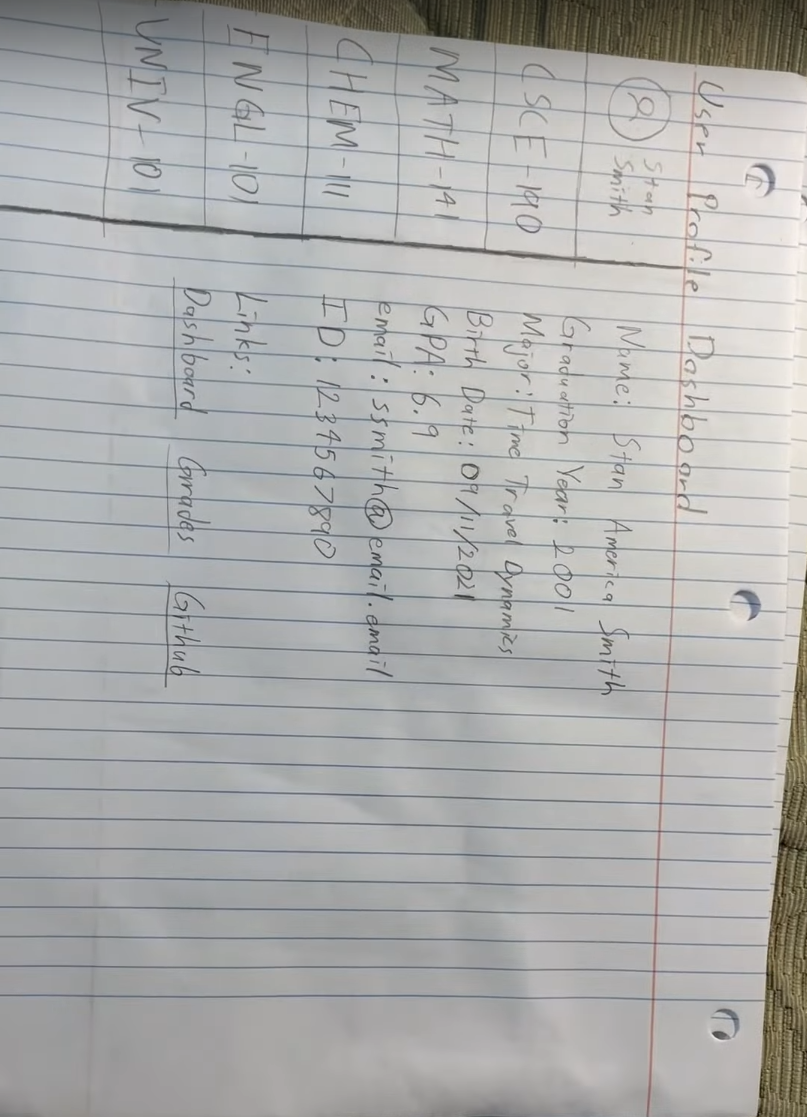 User Profile Dashboard
Stan
Smith
CSCE-190
MATH-141
CHEM-111
ENGL-101
UNIV-101
Name: Stan America Smith
Graduation Year: 2001
Major: Time Travel Dynamics
Birth Date: 09/11/2021
GPA: 6.9
email: ssmith@email.email
ID: 1234567890
Links:
Dashboard Grades Github